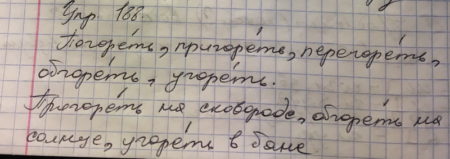 Упр 188.
Погоре́ть, пригоре́ть, перегоре́ть,
обгоре́ть, угоре́ть.
Пригоре́ть на сковороде, обгоре́ть на
солнце, угоре́ть в бане